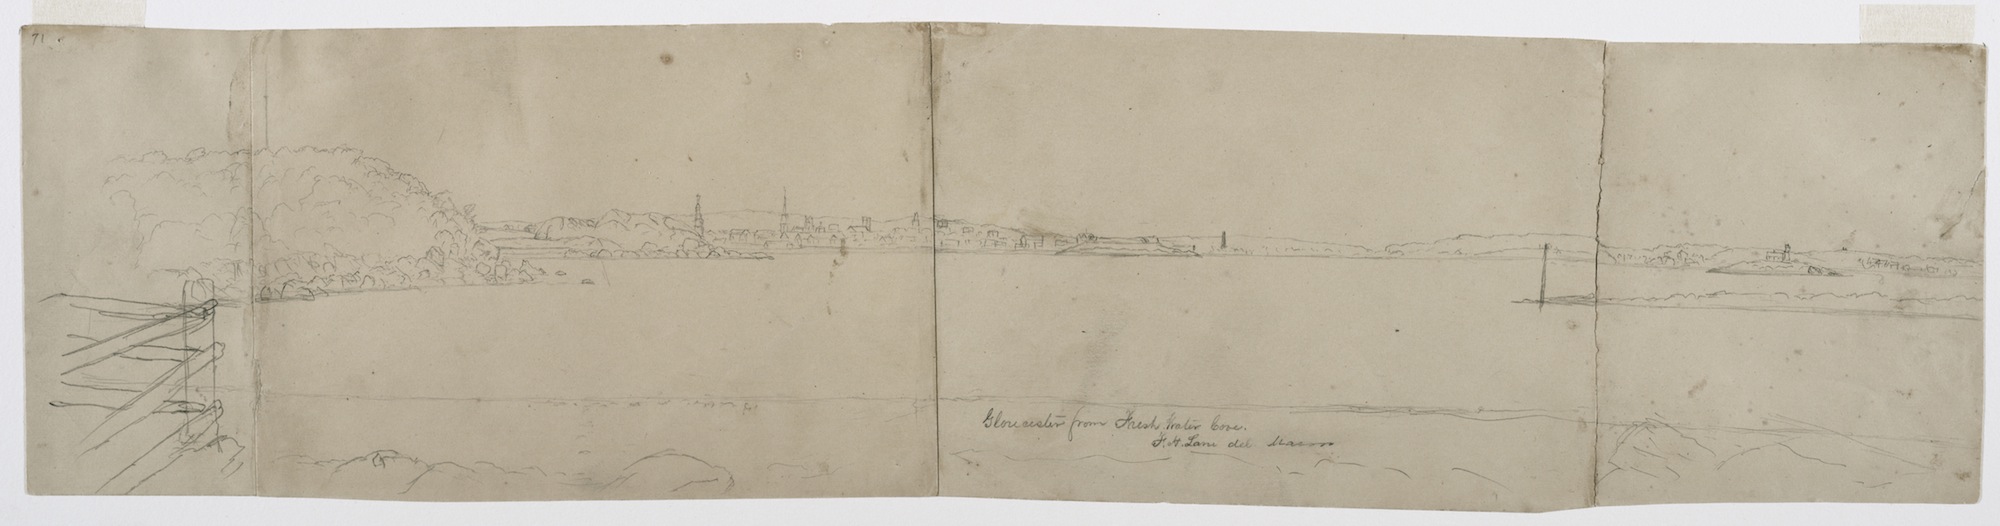 71
Gloucester from Fresh Water Cove.
F. H. Lane del